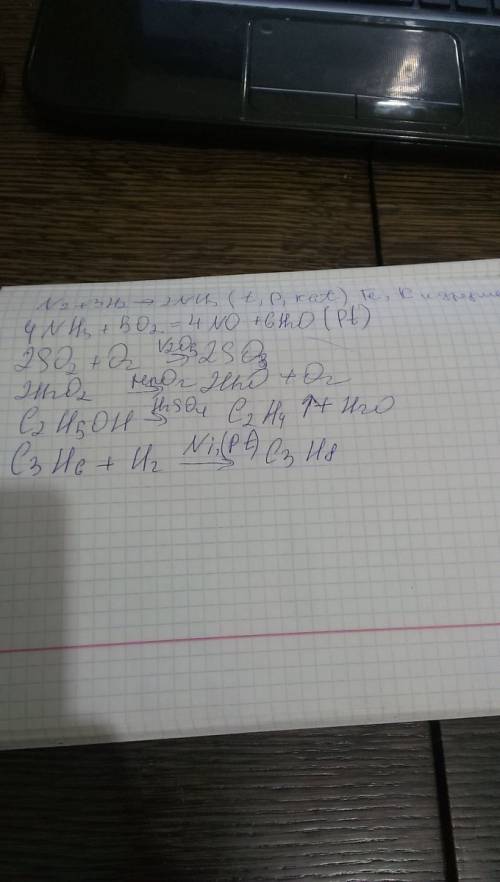 N2 + 3H2 → 2NH3 (t, p, kat) Fe,
4NH3 + 5O2 = 4NO + 6H2O (Pt)
2SO2 + O2 V2O5→ 2SO3
2H2O2 MnO2→ 2H2O + O2
C2H5OH H2SO4→ C2H4↑ + H2O
C3H6 + H2 Ni,(Pt)→ C3H8